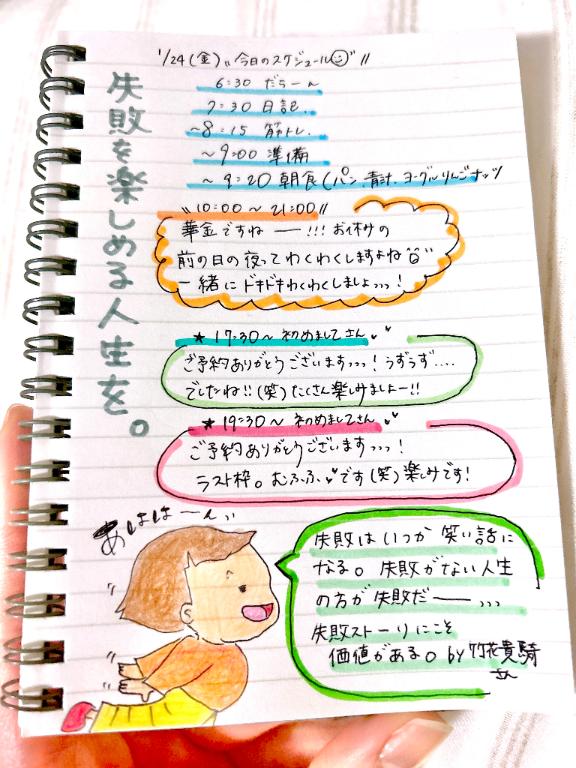 1/24(金)〃今日のスケジュール〃
失敗を楽しめる人生を。
6:30 だらーん
7:30 日記.
~8:15 筋トレ.
~9:00 準備
~9:20 朝食(パン、青汁、ヨーグルりんごナッツ
〃10:00~21:00〃
華金ですねー!!!お休みの
前の日の夜ってわくわくしますよね
一緒にドキドキわくわくしましょっっっ!
★17:30~初めましてさん
ご予約ありがとうございますっっっ!うずうず....
でしたね!!(笑)たくさん楽しみましよー!!
★19:30~初めましてさん
ご予約ありがとうございますっっっ!
ラスト枠。むふふです(笑)楽しみです!
あははーん
失敗はいつか笑い話に
なる。失敗がない人生
の方が失敗だー、、、
失敗ストーリにこそ
価値がある。by竹花貴騎
さん